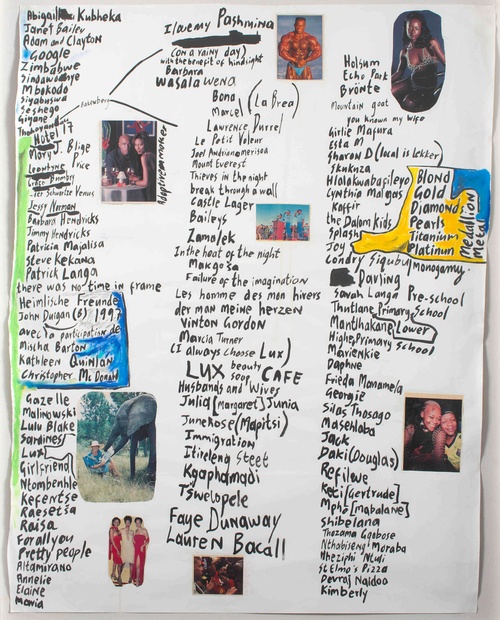 Abigail Kubheka
Janet Bailey
Adam and Clayton
Google
Zimbabwe
Mbokodo
Siyabuswa
Seshego
Giyani
Thohoyandou
Rosenberg
Hotel 17
Mary J. Blige
Leontyne Price
Grace Bumbry
-rer Schwarze Venus
Jessy Norman
Barbara Hendricks
Jimmy Hendricks
Patricia Majalisa
Steve Kekana
Patrick Langa
there was no time in frame
Heimlische Freunde
John Duigan (6) 1997
avec la participation de
Mischa Barton
Kathleen Quinlan
Christopher Mc Donald
Gazelle
Malinowski
Lulu Blake
Sardines
Lux
Girlfriend
Ntombenhle
Kefentse
Raesetsa
Raisa
For all you
Pretty people
Altamurano
Annelie
Elaine
Maria
I love my Pashmina
(on a rainy day)
with the benefit of hindsight
Barbara
wasala wena
Bona
Marcel (La Brea)
Lawrence Durrel
Le Petit Voleur
Mount Everest
Thieves in the night
break through a wall
Castle Lager
Baileys
Zamalek
In the heat of the night
Makgosa
Failure of the imagination
Les homme des man hivers
der man meine herzen
Vinton Gordon
Marcia Turner
(I always choose Lux)
LUX beauty soap CAFE
Husbands and Wives
Julia [Margaret] Junia
Junehose (Mapitsi)
Immigration
Itireleng Steet
Kgaphamadi
Tswelopele
Faye Dunaway
Lauren Bacall
Holsum
Echo Park
Brönte
Mountain goat
you know my wife
Girlie Mafura
Esta M
Sharon D (local is lekker)
Skukuza
Hlalakwabafileyo
Cynthia Malgas
Kaffir
the Dalom kids
Splash
Joy
Blond
Gold
Diamond
Pearls
Titanium
Platinum
Medallion
Metal
Londry Sigubu Monogamy.
Darling
Sarah Langa Pre-school
Thutlane Primary School
Manthakane Lower
Higher Primary School
Marienkie
Daphne
Frieda Manamela
Georgie
Silas Thosago
Masehlaba
Jack
Daki (Douglas)
Refilwe
Keti [Gertrude]
Mpho [Mabalane]
Shibelana
Thozama Gqobose
Nthabiseng Moraba
Nheziphi Ntuli
St Elmo's Pizza
Devraj Naidoo
Kimberly